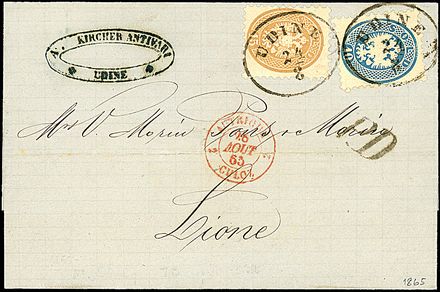 A. KIRCHER ANTIVARI
UDINE
UDINE
24
8
UDINE
24
8
Mr. V. Morin Pons & Morin
AUTRICHE
2 26 2
AOUT
65
CULOZ
PD
Lione
1865